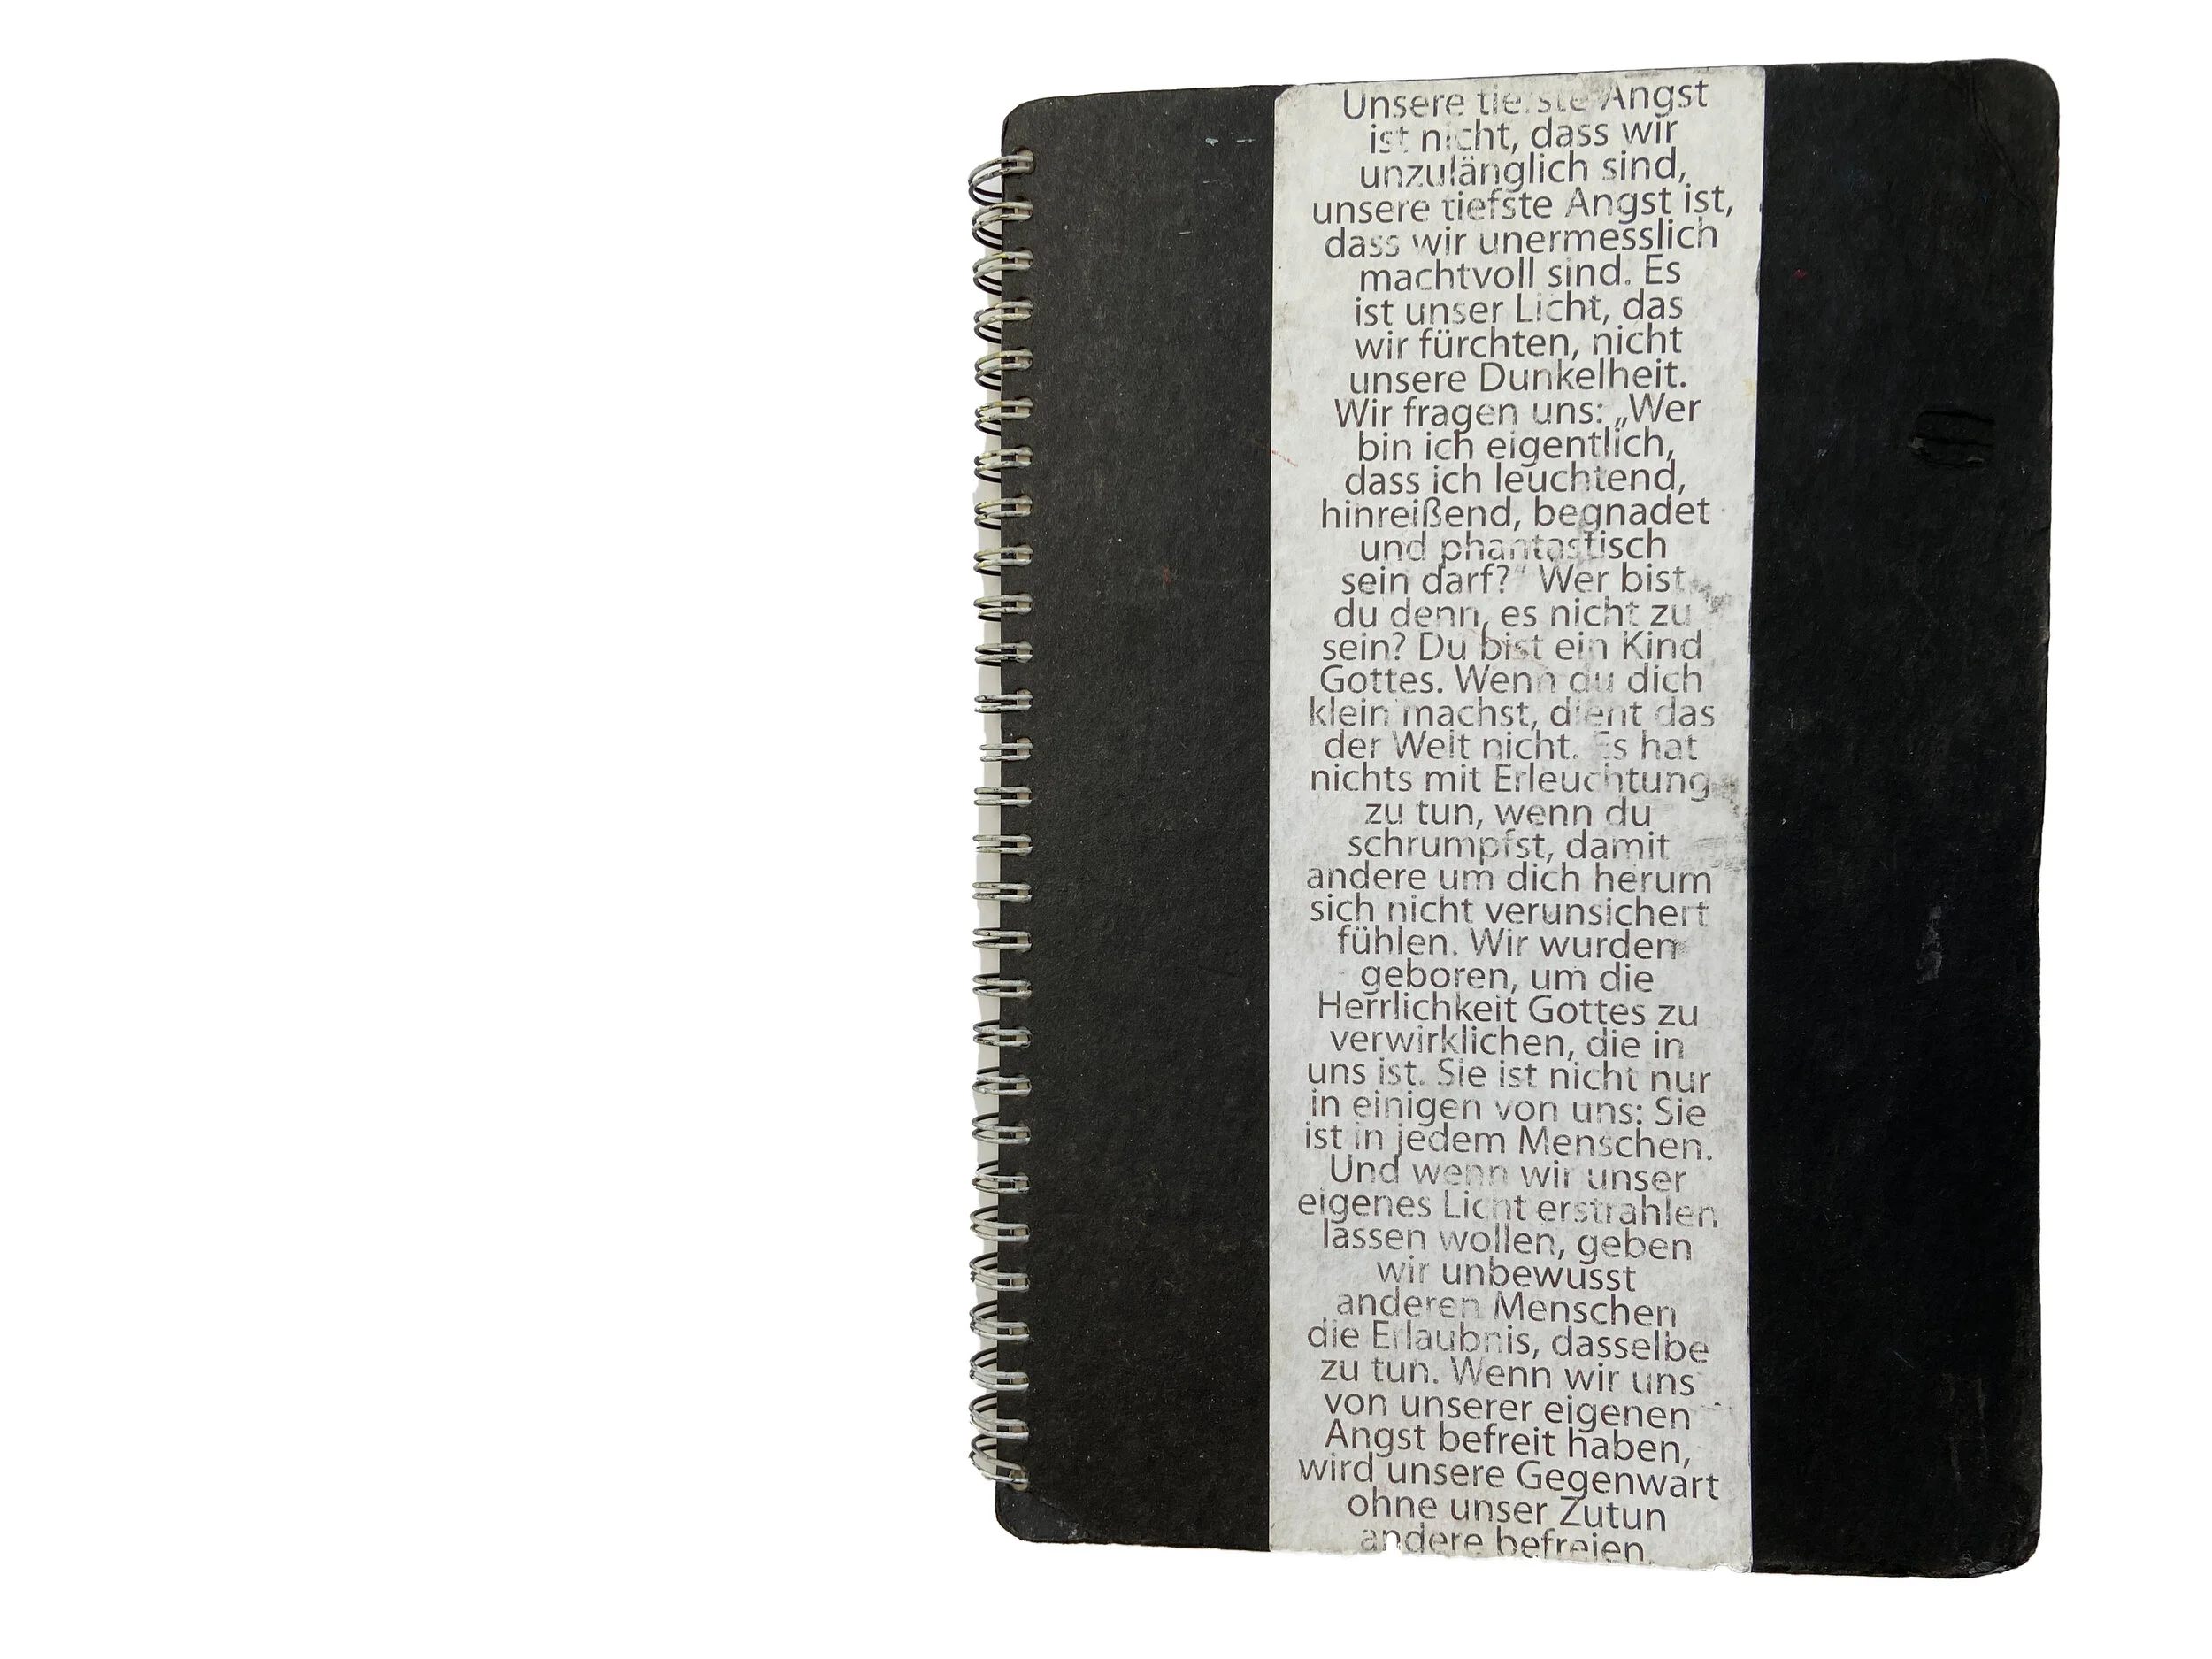 Unsere tiefste Angst
ist nicht, dass wir
unzulänglich sind,
unsere tiefste Angst ist,
dass wir unermesslich
machtvoll sind. Es
ist unser Licht, das
wir fürchten, nicht
unsere Dunkelheit.
Wir fragen uns: „Wer
bin ich eigentlich,
dass ich leuchtend,
hinreißend, begnadet
und phantastisch
sein darf?“ Wer bist
du denn, es nicht zu
sein? Du bist ein Kind
Gottes. Wenn du dich
klein machst, dient das
der Welt nicht. Es hat
nichts mit Erleuchtung
zu tun, wenn du
schrumpfst, damit
andere um dich herum
sich nicht verunsichert
fühlen. Wir wurden
geboren, um die
Herrlichkeit Gottes zu
verwirklichen, die in
uns ist. Sie ist nicht nur
in einigen von uns: Sie
ist in jedem Menschen.
Und wenn wir unser
eigenes Licht erstrahlen
lassen wollen, geben
wir unbewusst
anderen Menschen
die Erlaubnis, dasselbe
zu tun. Wenn wir uns
von unserer eigenen
Angst befreit haben,
wird unsere Gegenwart
ohne unser Zutun
andere befreien.